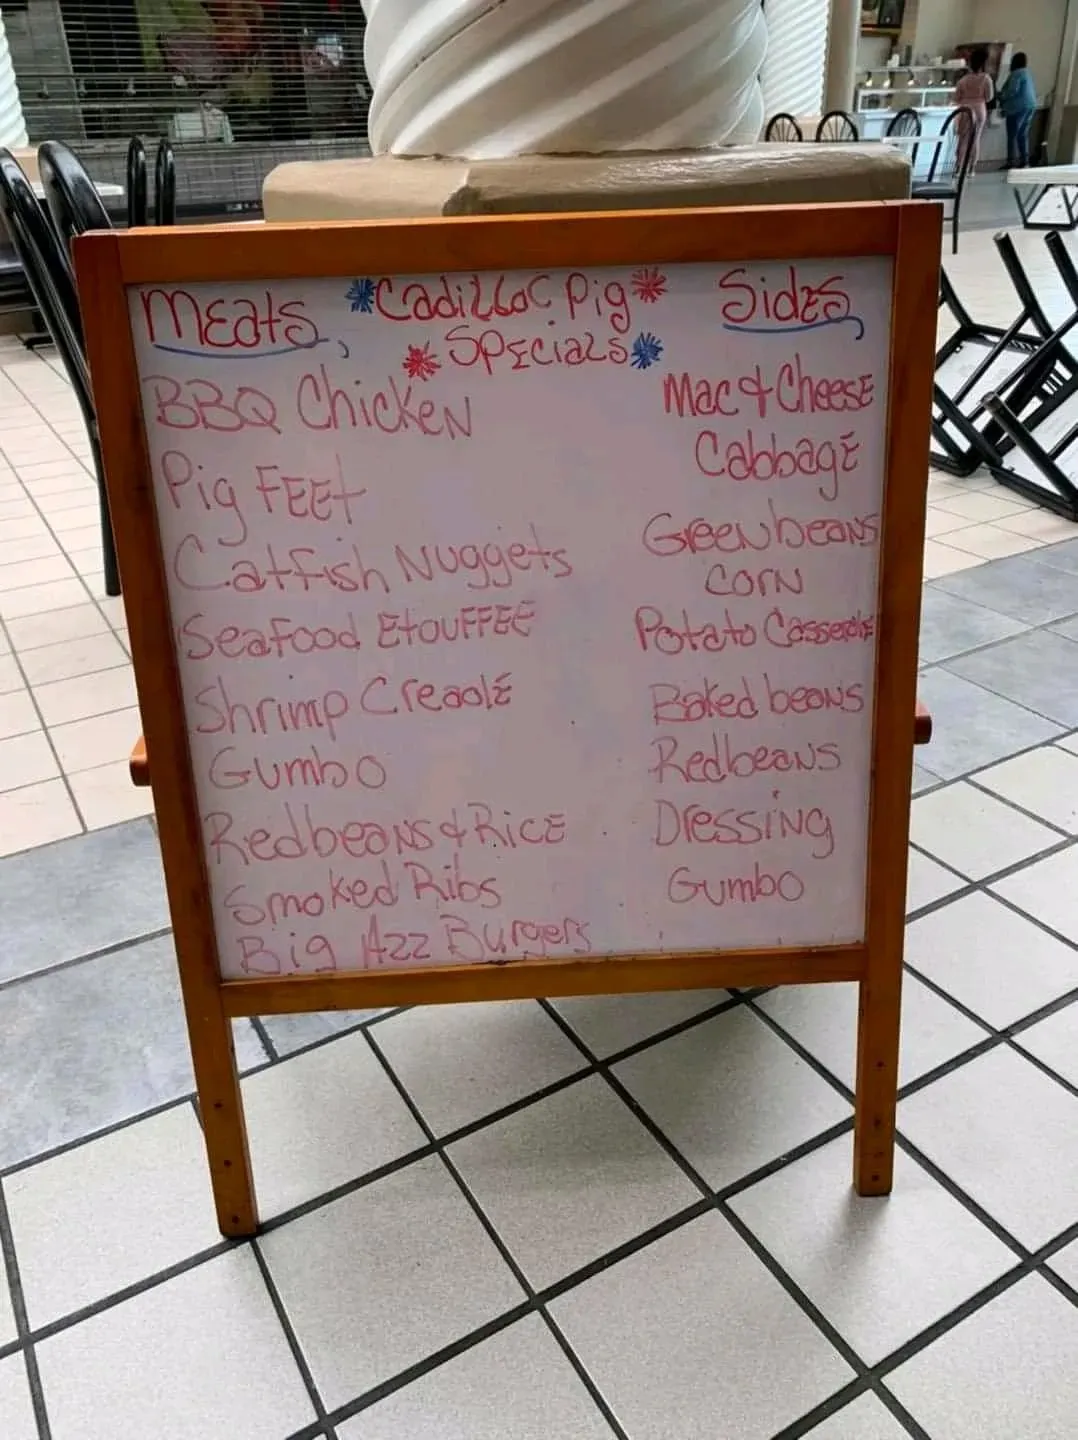 Meats
*Cadillac Pig*
*Specials*
Sides
BBQ Chicken
Pig Feet
Catfish Nuggets
Seafood Etouffee
Shrimp Creaolé
Gumbo
Redbeans & Rice
Smoked Ribs
Big Azz Burgers
Mac & Cheese
Cabbage
Greenbeans
Corn
Potato Casserole
Baked beans
Redbeans
Dressing
Gumbo